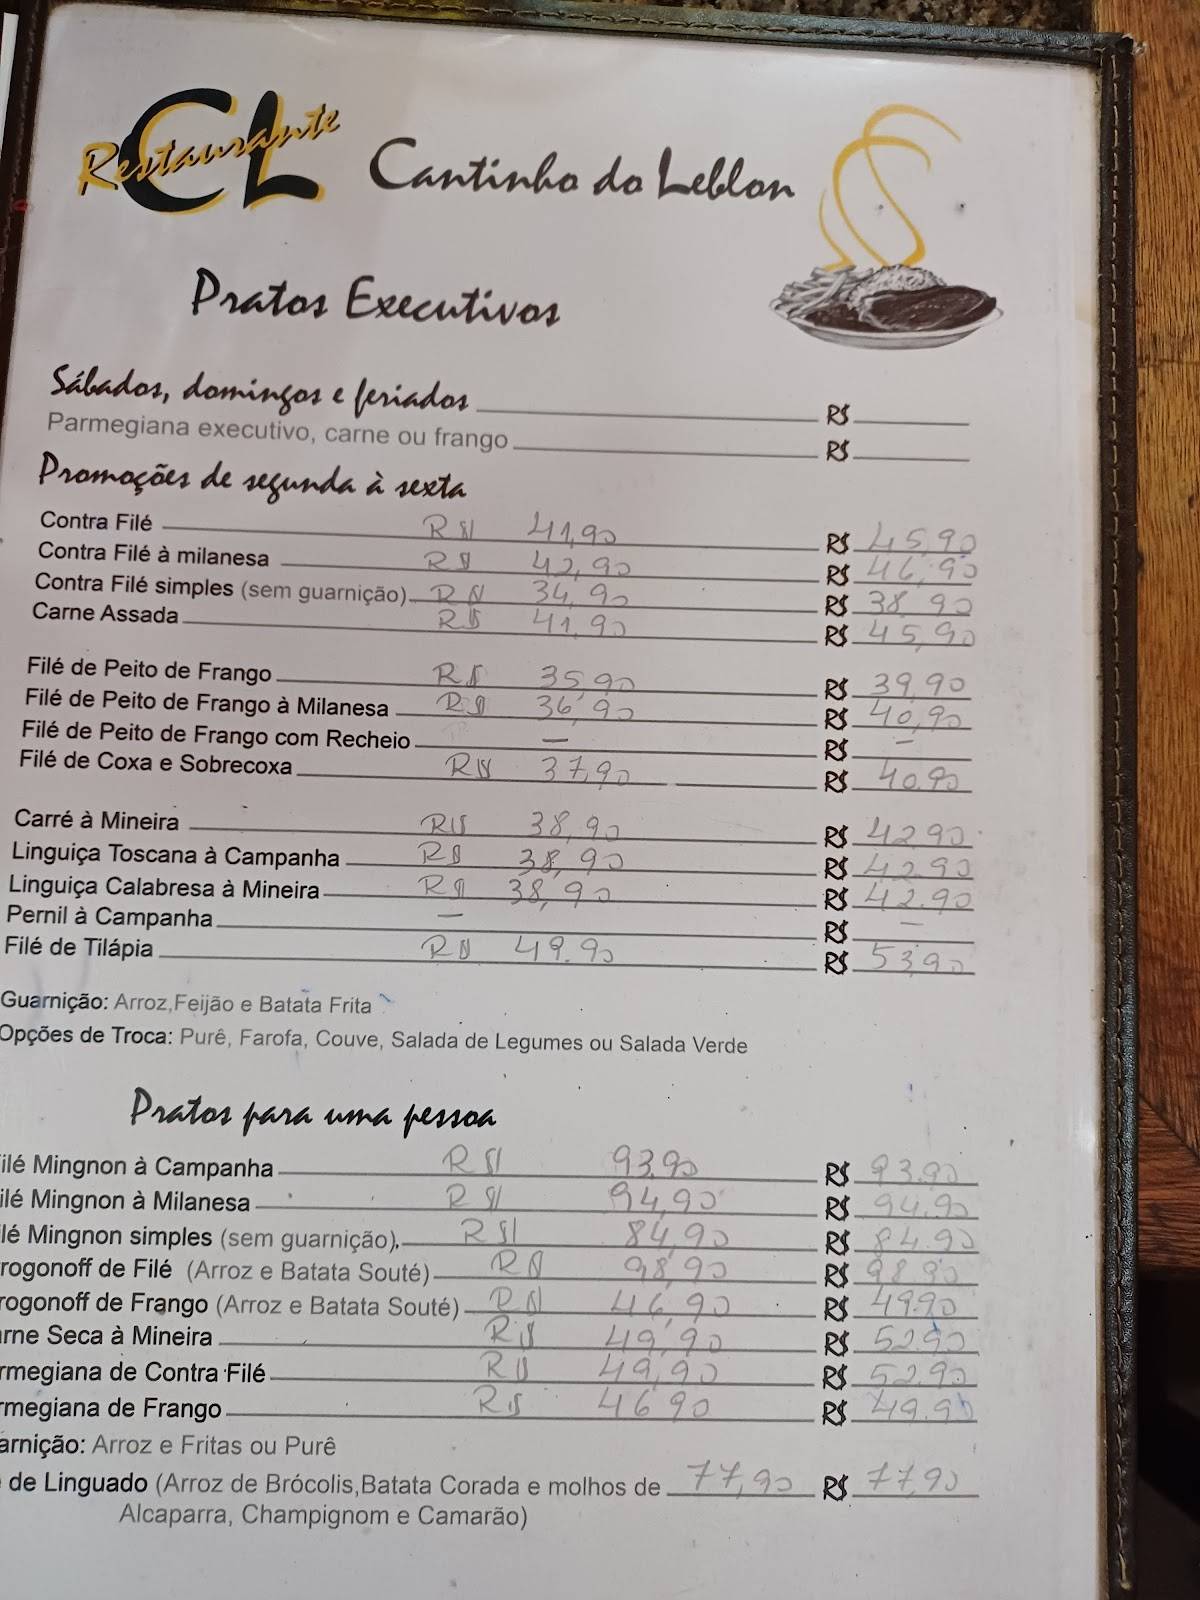 Restaurante CL Cantinho do Leblon
Pratos Executivos
Sábados, domingos e feriados R$
Parmegiana executivo, carne ou frango R$
Promoções de segunda à sexta
Contra Filé R$ 41,90 R$ 45,90
Contra Filé à milanesa R$ 42,90 R$ 46,90
Contra Filé simples (sem guarnição) R$ 34,90 R$ 38,90
Carne Assada R$ 41,90 R$ 45,90
Filé de Peito de Frango R$ 35,90 R$ 39,90
Filé de Peito de Frango à Milanesa R$ 36,90 R$ 40,90
Filé de Peito de Frango com Recheio — R$ —
Filé de Coxa e Sobrecoxa R$ 37,90 R$ 40.90
Carré à Mineira R$ 38,90 R$ 42.90
Linguiça Toscana à Campanha R$ 38,90 R$ 42.90
Linguiça Calabresa à Mineira R$ 38,90 R$ 42.90
Pernil à Campanha — R$ —
Filé de Tilápia R$ 49.90 R$ 53,90
Guarnição: Arroz,Feijão e Batata Frita
Opções de Troca: Purê, Farofa, Couve, Salada de Legumes ou Salada Verde
Pratos para uma pessoa
ilé Mingnon à Campanha R$ 93,90 R$ 93.90
ilé Mingnon à Milanesa R$ 94,90 R$ 94.90
lé Mingnon simples (sem guarnição). R$ 84,90 R$ 84.90
rogonoff de Filé (Arroz e Batata Souté) R$ 98,90 R$ 98.90
rogonoff de Frango (Arroz e Batata Souté) R$ 46,90 R$ 49.90
arne Seca à Mineira R$ 49,90 R$ 52.90
rmegiana de Contra Filé R$ 49,90 R$ 52.90
rmegiana de Frango R$ 46 90 R$ 49.90
arnição: Arroz e Fritas ou Purê
de Linguado (Arroz de Brócolis,Batata Corada e molhos de 77,90 R$ 77,90
Alcaparra, Champignom e Camarão)